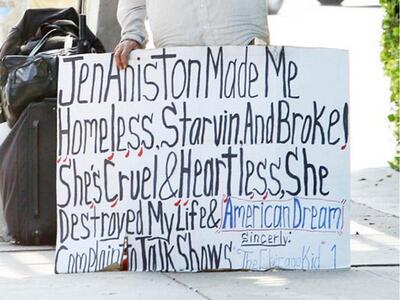 Jen Aniston Made Me
Homeless, Starvin, And Broke!
She's Cruel & Heartless, She
Destroyed My Life & "American Dream"
Sincerly:
Complain to Talk Shows "The Chicago Kid" 1